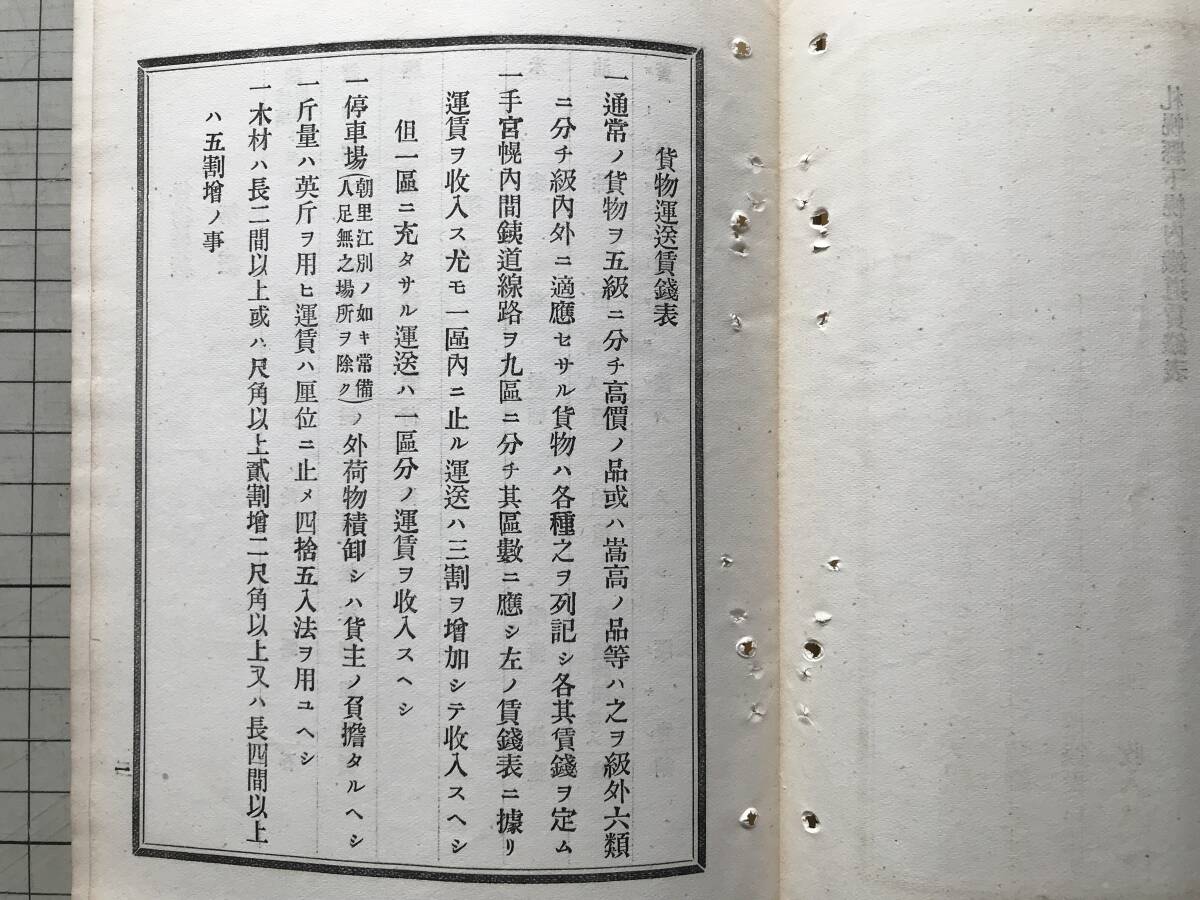 貨物運送賃錢表
一通常ノ貨物ヲ五級ニ分チ高價ノ品或ハ嵩高ノ品等ハ之ヲ級外六類
ニ分チ級內外ニ適應セサル貨物ハ各種之ヲ列記シ各其賃錢ヲ定ム
一手宮幌內間銕道線路ヲ九區ニ分チ其區數ニ應シ左ノ賃錢表ニ據リ
運賃ヲ收入ス尤モ一區內ニ止ル運送ハ三割ヲ增加シテ收入スヘシ
但一區ニ充タサル運送ハ一區分ノ運賃ヲ收入スヘシ
一停車場(朝里江別ノ如キ常備人足無之場所ヲ除ク)ノ外荷物積卸シハ貨主ノ負擔タルヘシ
一斤量ハ英斤ヲ用ヒ運賃ハ厘位ニ止メ四捨五入法ヲ用ユヘシ
一木材ハ長二間以上或ハ尺角以上貳割增二尺角以上又ハ長四間以上
ハ五割增ノ事
札幌縣下幌內鐵道賃錢表